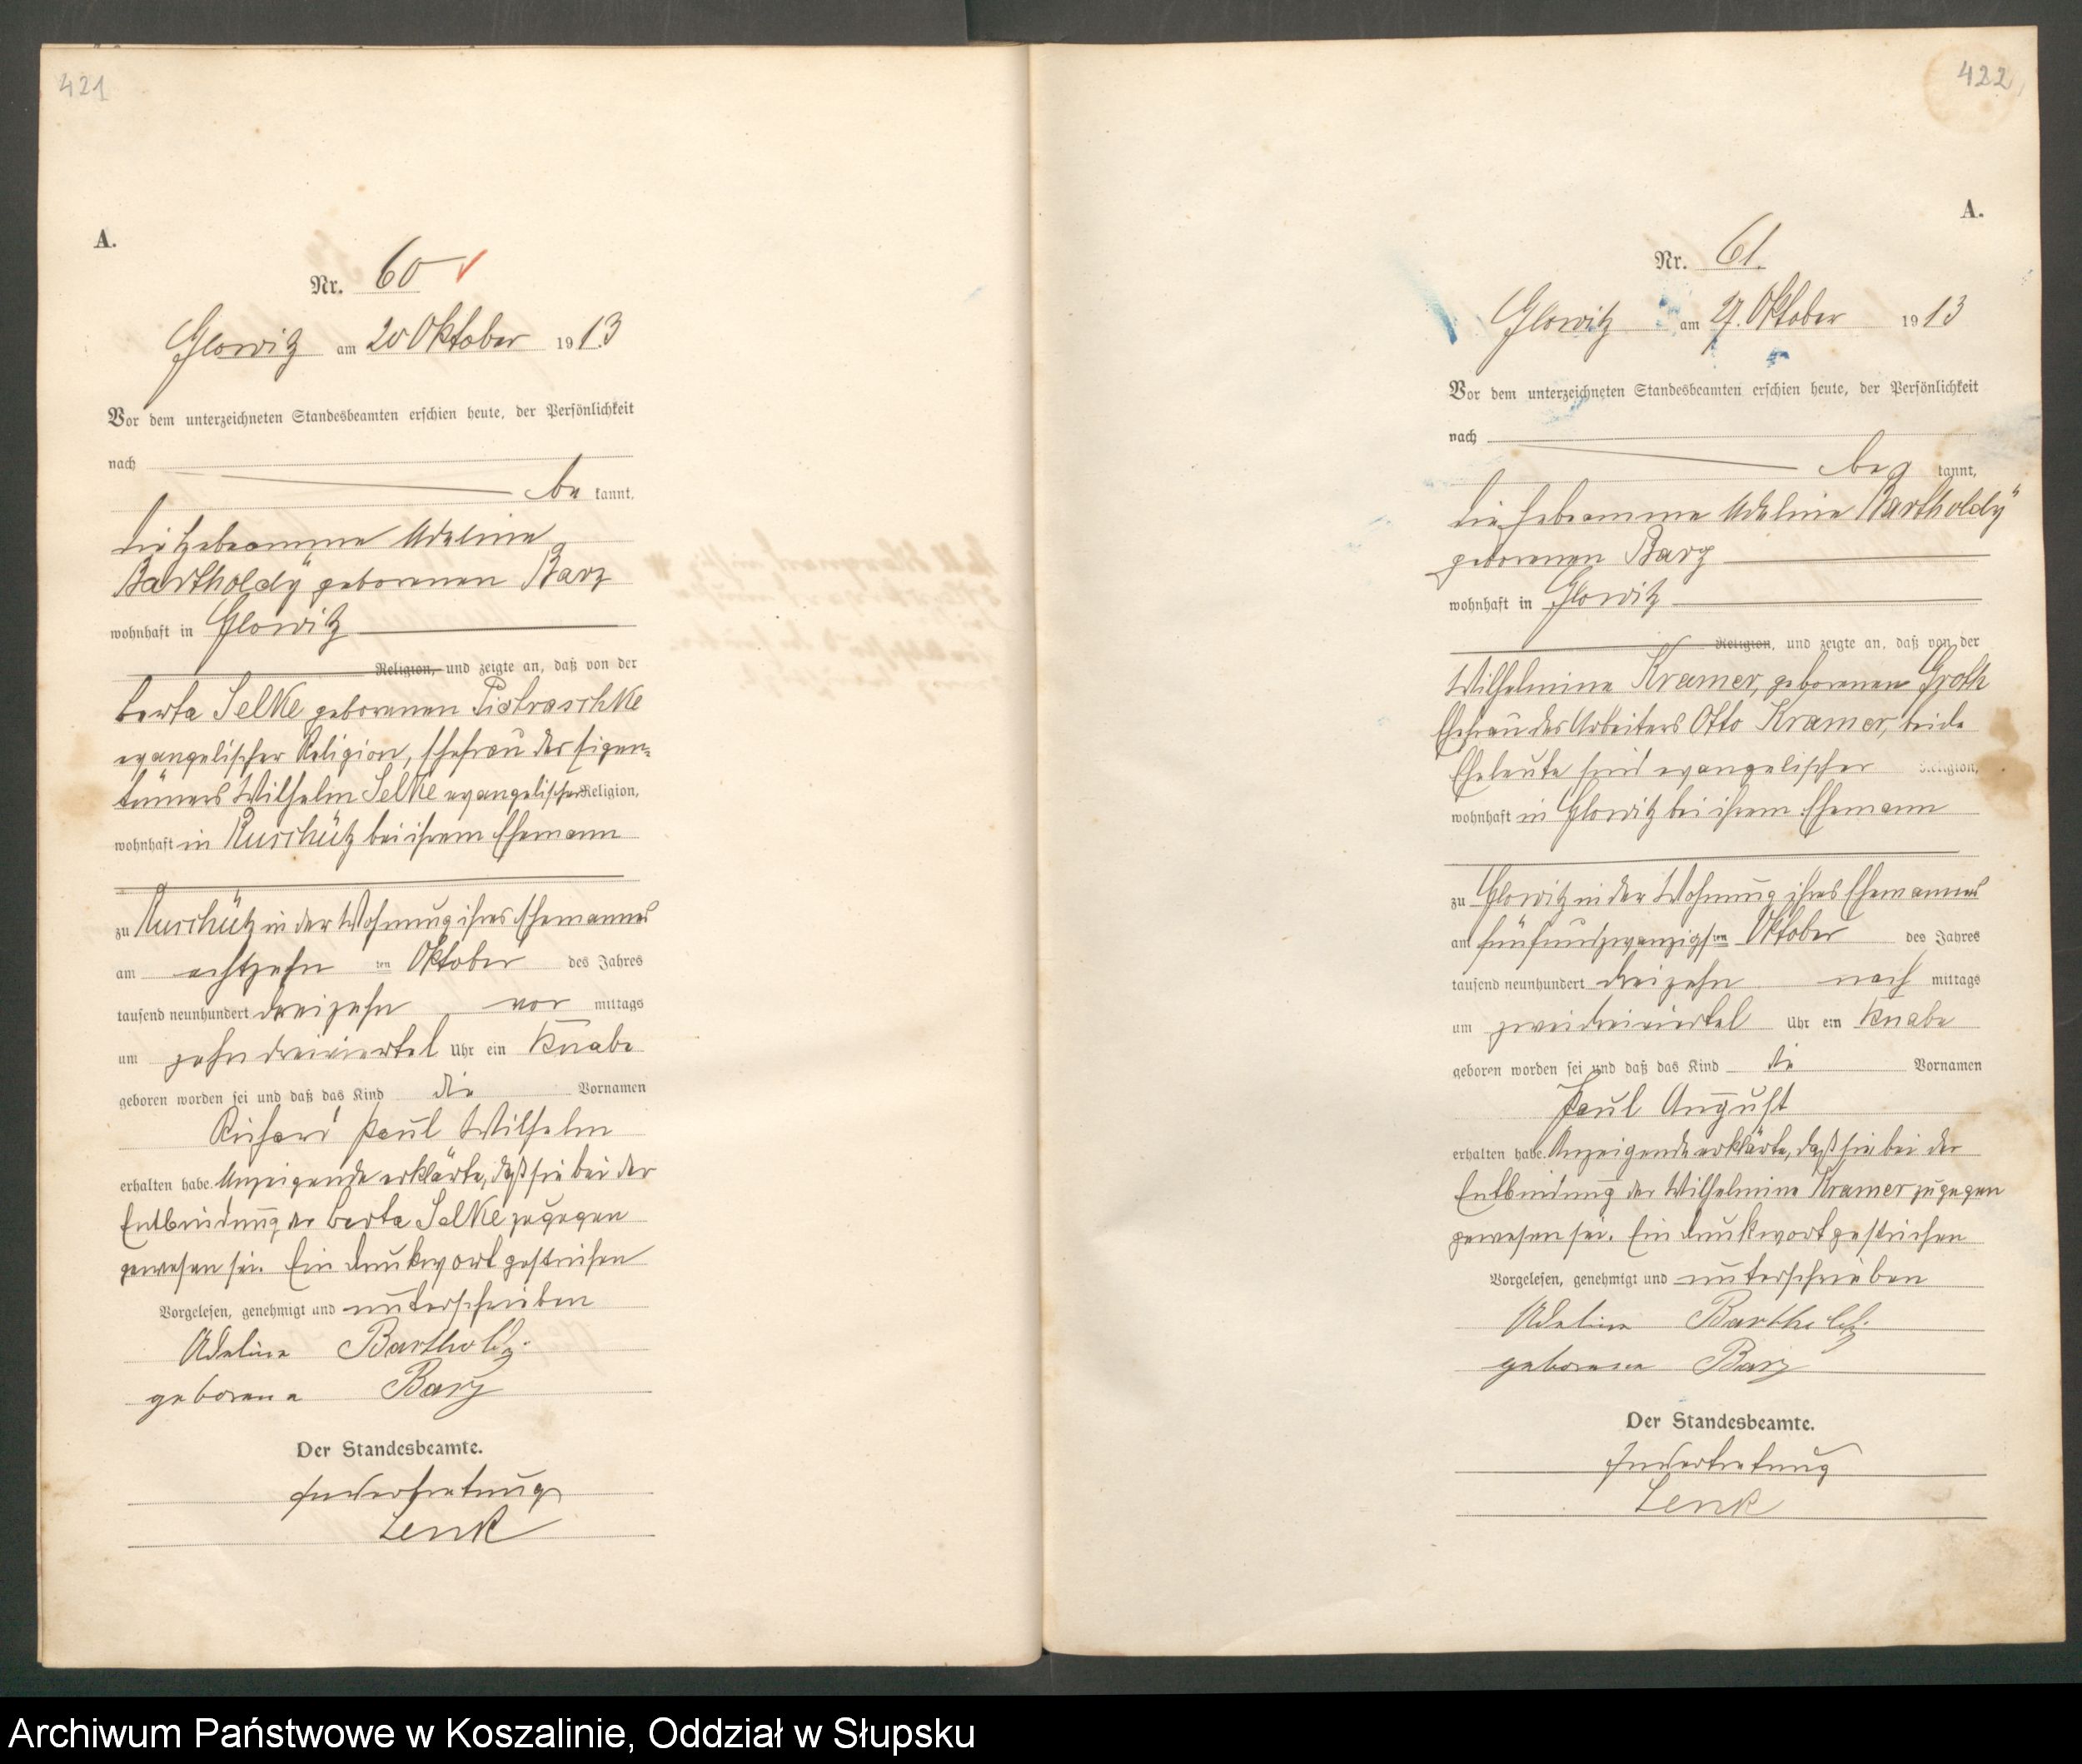 421
A.
Nr. 60
Glowitz am 20 Oktober 1913
Vor dem unterzeichneten Standesbeamten erschien heute, der Persönlichkeit
nach
be kannt,
die Hebeamme Adeline
Bartholdy geborenen Barz
wohnhaft in Glowitz
Religion, und zeigte an, daß von der
Berta Selke geborenen Pietraschke
evangelischer Religion, Ehefrau des Eigen-
tümers Wilhelm Selke evangelischer Religion,
wohnhaft in Ruschütz bei ihrem Ehemann
zu Ruschütz in der Wohnung ihres Ehemannes
am achtzehn ten Oktober des Jahres
tausend neunhundert dreizehn vor mittags
um zehn dreiviertel Uhr ein Knabe
geboren worden sei und daß das Kind die Vornamen
Richard Paul Wilhelm
erhalten habe. Anzeigende erklärte, daß sie bei der
Entbindung der Berta Selke zugegen
gewesen sei. Ein Druckwort gestrichen
Vorgelesen, genehmigt und unterschrieben
Adeline Bartholdy
geborene Barz
Der Standesbeamte.
In Vertretung
Lenk
422
A.
Nr. 61.
Glowitz am 27. Oktober 1913
Vor dem unterzeichneten Standesbeamten erschien heute, der Persönlichkeit
nach
be kannt,
die Hebeamme Adeline Bartholdy
geborenen Barz
wohnhaft in Glowitz
Religion, und zeigte an, daß von der
Wilhelmine Kramer, geborenen Groth
Ehefrau des Arbeiters Otto Kramer, beide
Eheleute sind evangelischer Religion,
wohnhaft in Glowitz bei ihrem Ehemann
zu Glowitz in der Wohnung ihres Ehemannes
am fünfundzwanzigsten Oktober des Jahres
tausend neunhundert dreizehn nach mittags
um zwei dreiviertel Uhr ein Knabe
geboren worden sei und daß das Kind die Vornamen
Paul August
erhalten habe. Anzeigende erklärte, daß sie bei der
Entbindung der Wilhelmine Kramer zugegen
gewesen sei. Ein Druckwort gestrichen
Vorgelesen, genehmigt und unterschrieben
Adeline Bartholdy
geborene Barz
Der Standesbeamte.
In Vertretung
Lenk
Archiwum Państwowe w Koszalinie, Oddział w Słupsku